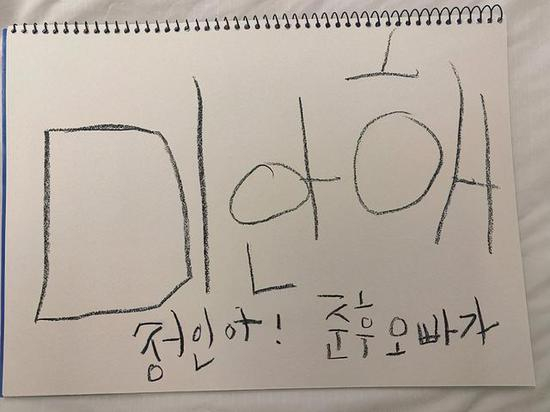 미안해
정인아! 준후오빠가